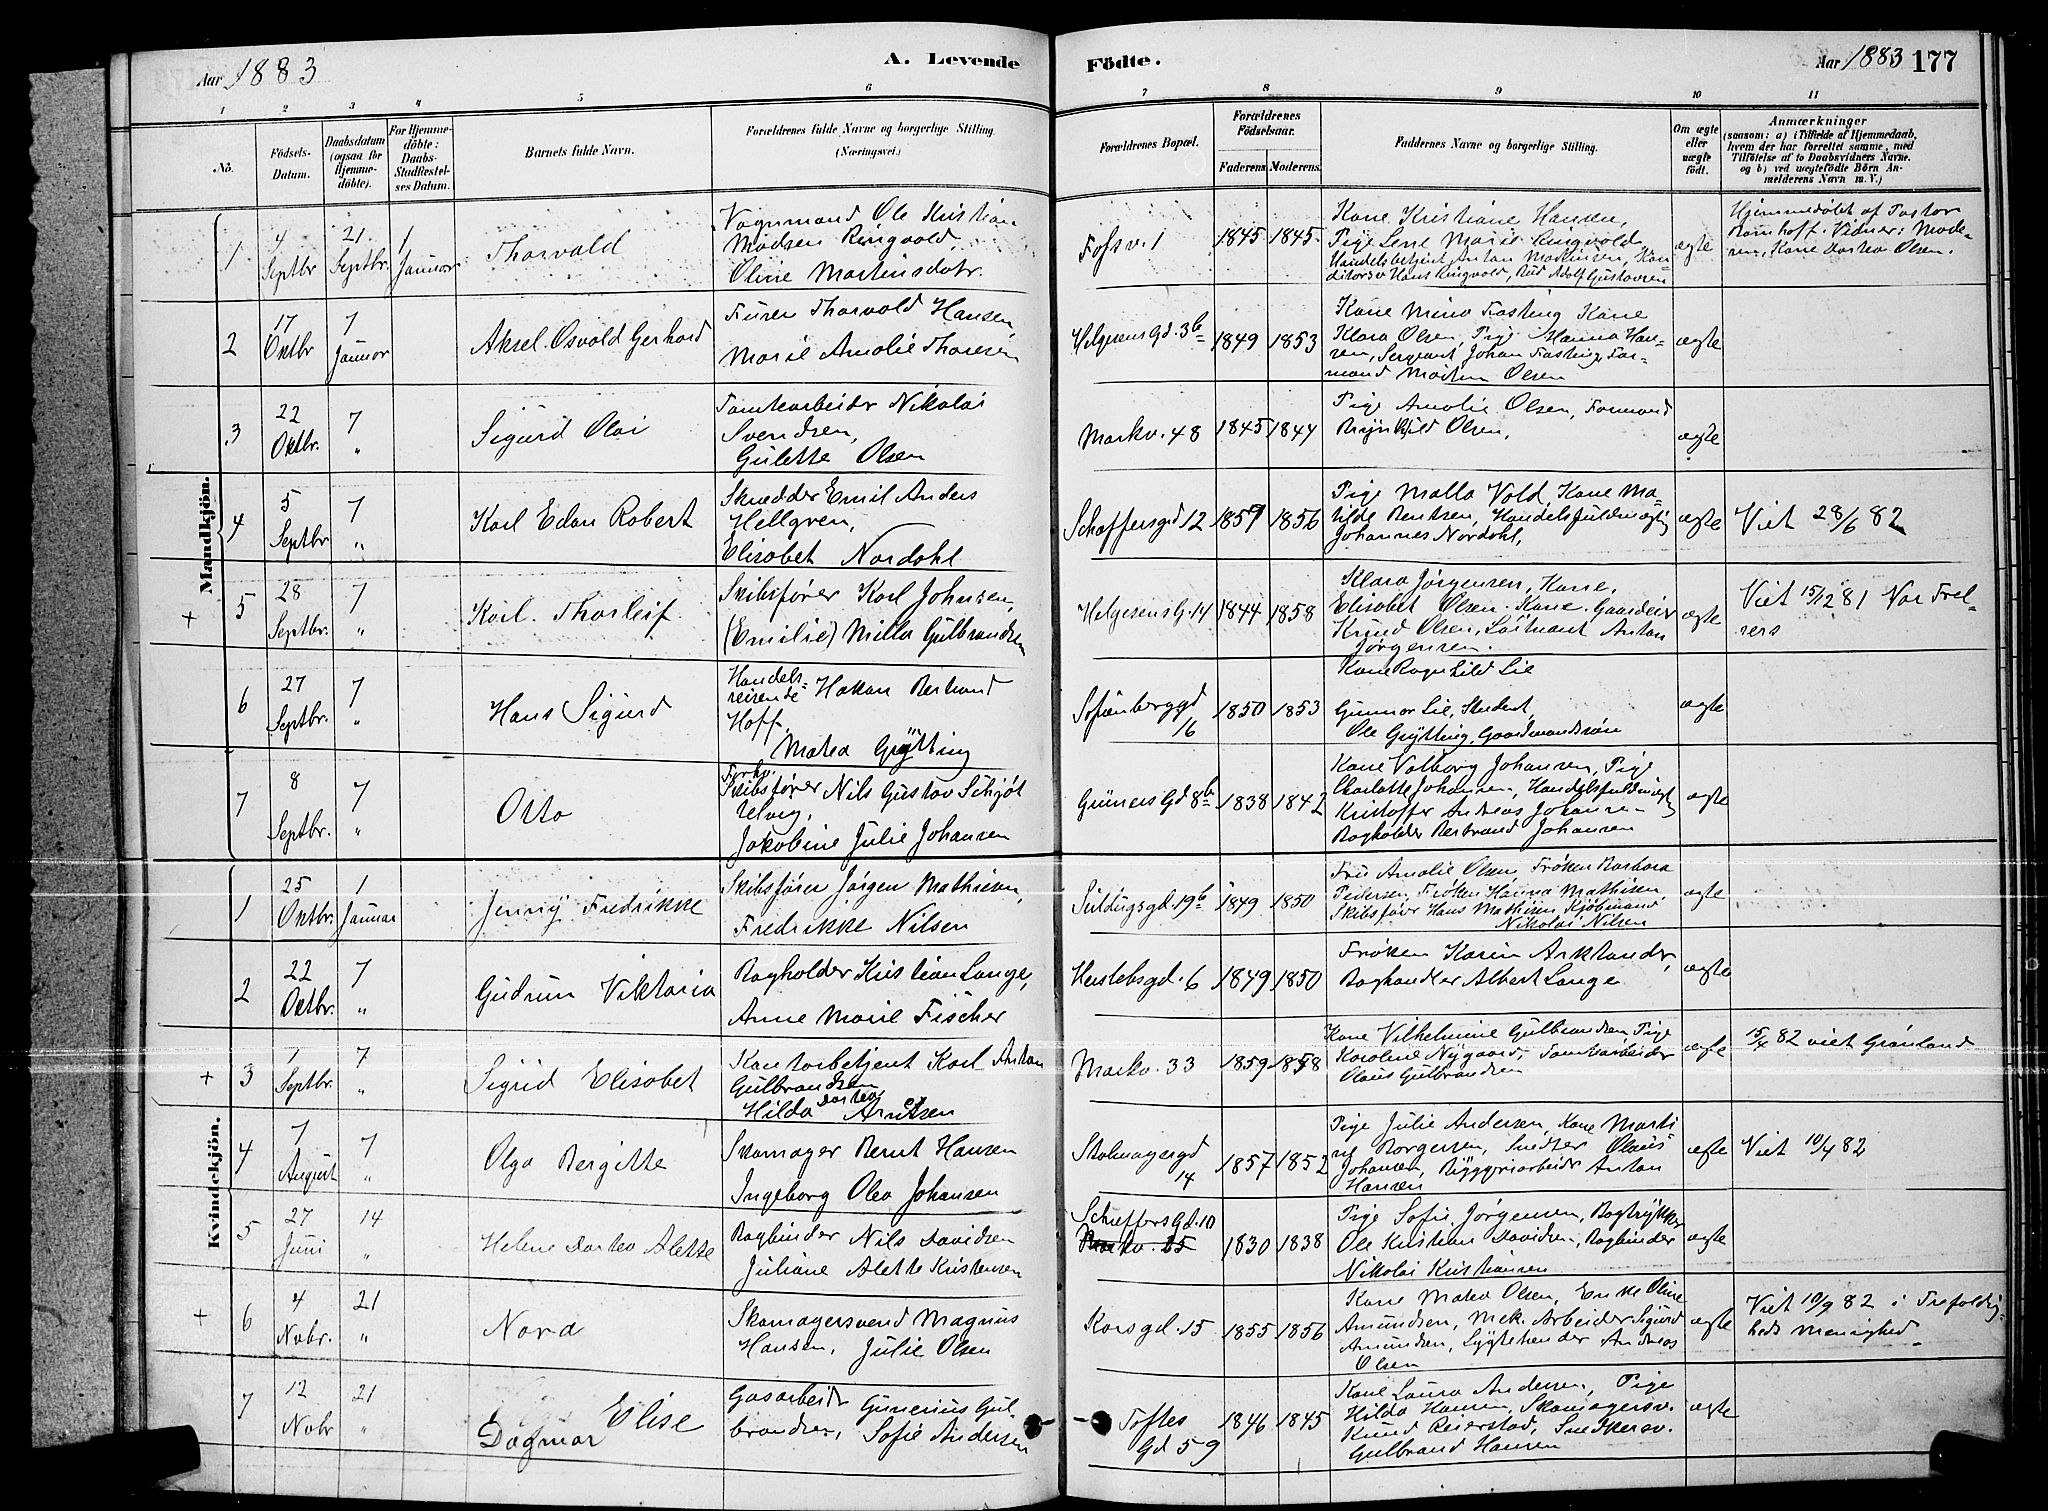 Aar 1883
A. Levende
Födte.
Aar 1883 177
1 2 3 4 5 6 7 8 9 10 11
No.
Födsels-
Datum.
Daabsdatum
(ogsaa for
Hjemme-
döbte).
For Hjemme-
döbte:
Daabs-
Stadfæstel-
ses Datum.
Barnets fulde Navn.
Forældrenes fulde Navne og borgerlige Stilling.
(Næringsvei.)
Forældrenes Bopæl.
Forældrenes
Födselsaar.
Faderens. Moderens.
Faddernes Navne og borgerlige Stilling.
Om ægte
eller
uægte
födt.
Anmærkninger
(saasom: a) i Tilfælde af Hjemmedaab,
hvem der har forrettet samme, med
Tilföielse af to Daabsvidners Navne,
og b) ved uægtefödte Börn An-
melderens Navn m. V.)
Mandkjön.
1
4
Septbr
21
Septbr.
1
Januar
Thorvald
Vognmand Ole Kristian
Madsen Ringvold,
Oline Martinsdatr.
Fossv. 1
1845 1845
Kone Kristiane Hansen,
Pige Lene Marie Ringvold,
Handelsbetjent Anton Martinsen, Kon-
ditorsv Hans Ringvold, Bud Adolf Gustavsen
ægte
Hjemmedøbt af Pastor
Ramhoff. Vidner: Mode-
ren, Kone Dortea Olsen.
2
17
Oktbr
7
Januar
Aksel Osvald Gerhard
Furer Thorvald Hansen
Marie Amalie Thoresen
Helgesens Gd. 3b
1849 1853
Kone Mina Fasting Kone
Klara Olsen, Pige Hanna Han-
sen, Sergeant Johan Fasting, For-
mand Martin Olsen
ægte
3
22
Oktbr.
7
"
Sigurd Olai
Tomtearbeider Nikolai
Svendsen,
Gulette Olsen
Markv. 48
1845 1844
Pige Amalie Olsen, Formand
Brynhild Olsen,
ægte
4
5
Septbr
7
"
Karl Edon Robert
Skrædder Emil Anders
Hellgren,
Elisabet Nordahl
Schaffersgd 12
1857 1856
Pige Malla Vold, Kone Ma-
tilde Bentsen, Handelsfuldmægtig
Johannes Nordahl,
ægte
Viet 28/6 82
+ 5
28
Septbr.
7
"
Karl Thorleif
Skibsfører Karl Johnsen,
(Emilie) Milla Gulbrandsen
Helgesens G. 14
1844 1858
Klara Jørgensen, Kone,
Elisabet Olsen. Kone. Gaardeier
Knud Olsen, Løitnant Anton
Jørgensen.
ægte
Viet 15/12 81 Vor Frel-
sers
6
27
Septbr.
7
"
Hans Sigurd
Handels-
reisende Hakon Bertrand
Hoff,
Matea Grytting
Sofienberggd
16
1850 1853
Kone Ragnhild Lie
Gunnar Lie, Student,
Ole Grytting, Gaardmandssøn
ægte
7
8
Septbr.
7
"
Otto
Forhv.
Skibsfører Nils Gustav Schjøt
Ulvig,
Jakobine Julie Johansen
Grüners Gd 8b
1838 1842
Kone Valborg Johansen, Pige
Charlotte Johansen, Handelsfuldmægtig
Kristoffer Andreas Johansen
Bogholder Bertrand Johansen
ægte
Kvindekjön.
1
25
Oktbr.
1
Januar
Jenny Fredrikke
Skibsfører Jørgen Mathisen,
Fredrikke Nilsen
Suldugsgd. 19b
1849 1850
Fru Amalie Olsen, Frøken Barbara
Pedersen Frøken Hanna Mathisen,
Skibsfører Hans Mathisen, Kjøbmand
Nikolai Nilsen
ægte
2
22
Oktbr.
7
"
Gudrun Viktoria
Bogholder Kristian Lange,
Anne Marie Fischer
Herslebsgd. 6
1849 1850
Frøken Karin Arktander,
Boghandler Albert Lange
ægte
+ 3
1
Septbr.
7
"
Sigrid Elisabet
Kontorbetjent Karl Anton
Gulbrandsen
Hilda Dortea Arntsen
Markv. 33
1859 1858
Kone Vilhelmine Gulbrandsen, Pige
Karoline Nygaard, Tomtearbeider
Olaus Gulbrandsen
ægte
15/4 82 viet Grønland
4
7
August
7
"
Olga Bergitte
Skomager Bernt Hansen
Ingeborg Olea Johansen
Stolmagergd
14
1857 1852
Pige Julie Andersen, Kone Marti
ne Borgersen, Snedker Olaus
Johansen, Byggeriarbeider Anton
Hansen
ægte
Viet 10/4 82
5
27
Juni
14
"
Helene Dortea Alette
Bogbinder Nils Davidsen
Juliane Alette Kristensen
Schæffers Gd. 10
Markv. 25
1830 1838
Pige Sofie Jørgensen, Bogtrykker
Ole Kristian Davidsen, Bogbinder
Nikolai Kristiansen
ægte
+ 6
4
Nobr.
21
"
Nora
Skomagersvend Magnus
Hansen, Julie Olsen
Korsgd. 15
1855 1856
Kone Matea Olsen, Enke Oline
Amundsen, Mek. Arbeider Sigurd
Amundsen, Lygtetender Andreas
Olsen
ægte
Viet 10/9 82 i Trefoldig-
heds Menighed
7
12
Nobr
21
"
Dagmar Elise
Gasarbeidr Gunerius Gul
brandsen, Sofie Andersen
Toftes
Gd 59
1846 1845
Kone Laura Andersen, Pige
Hilda Hansen, Skomagersv.
Knud Reierstad, Snedkersv.
Gulbrand Hansen
ægte